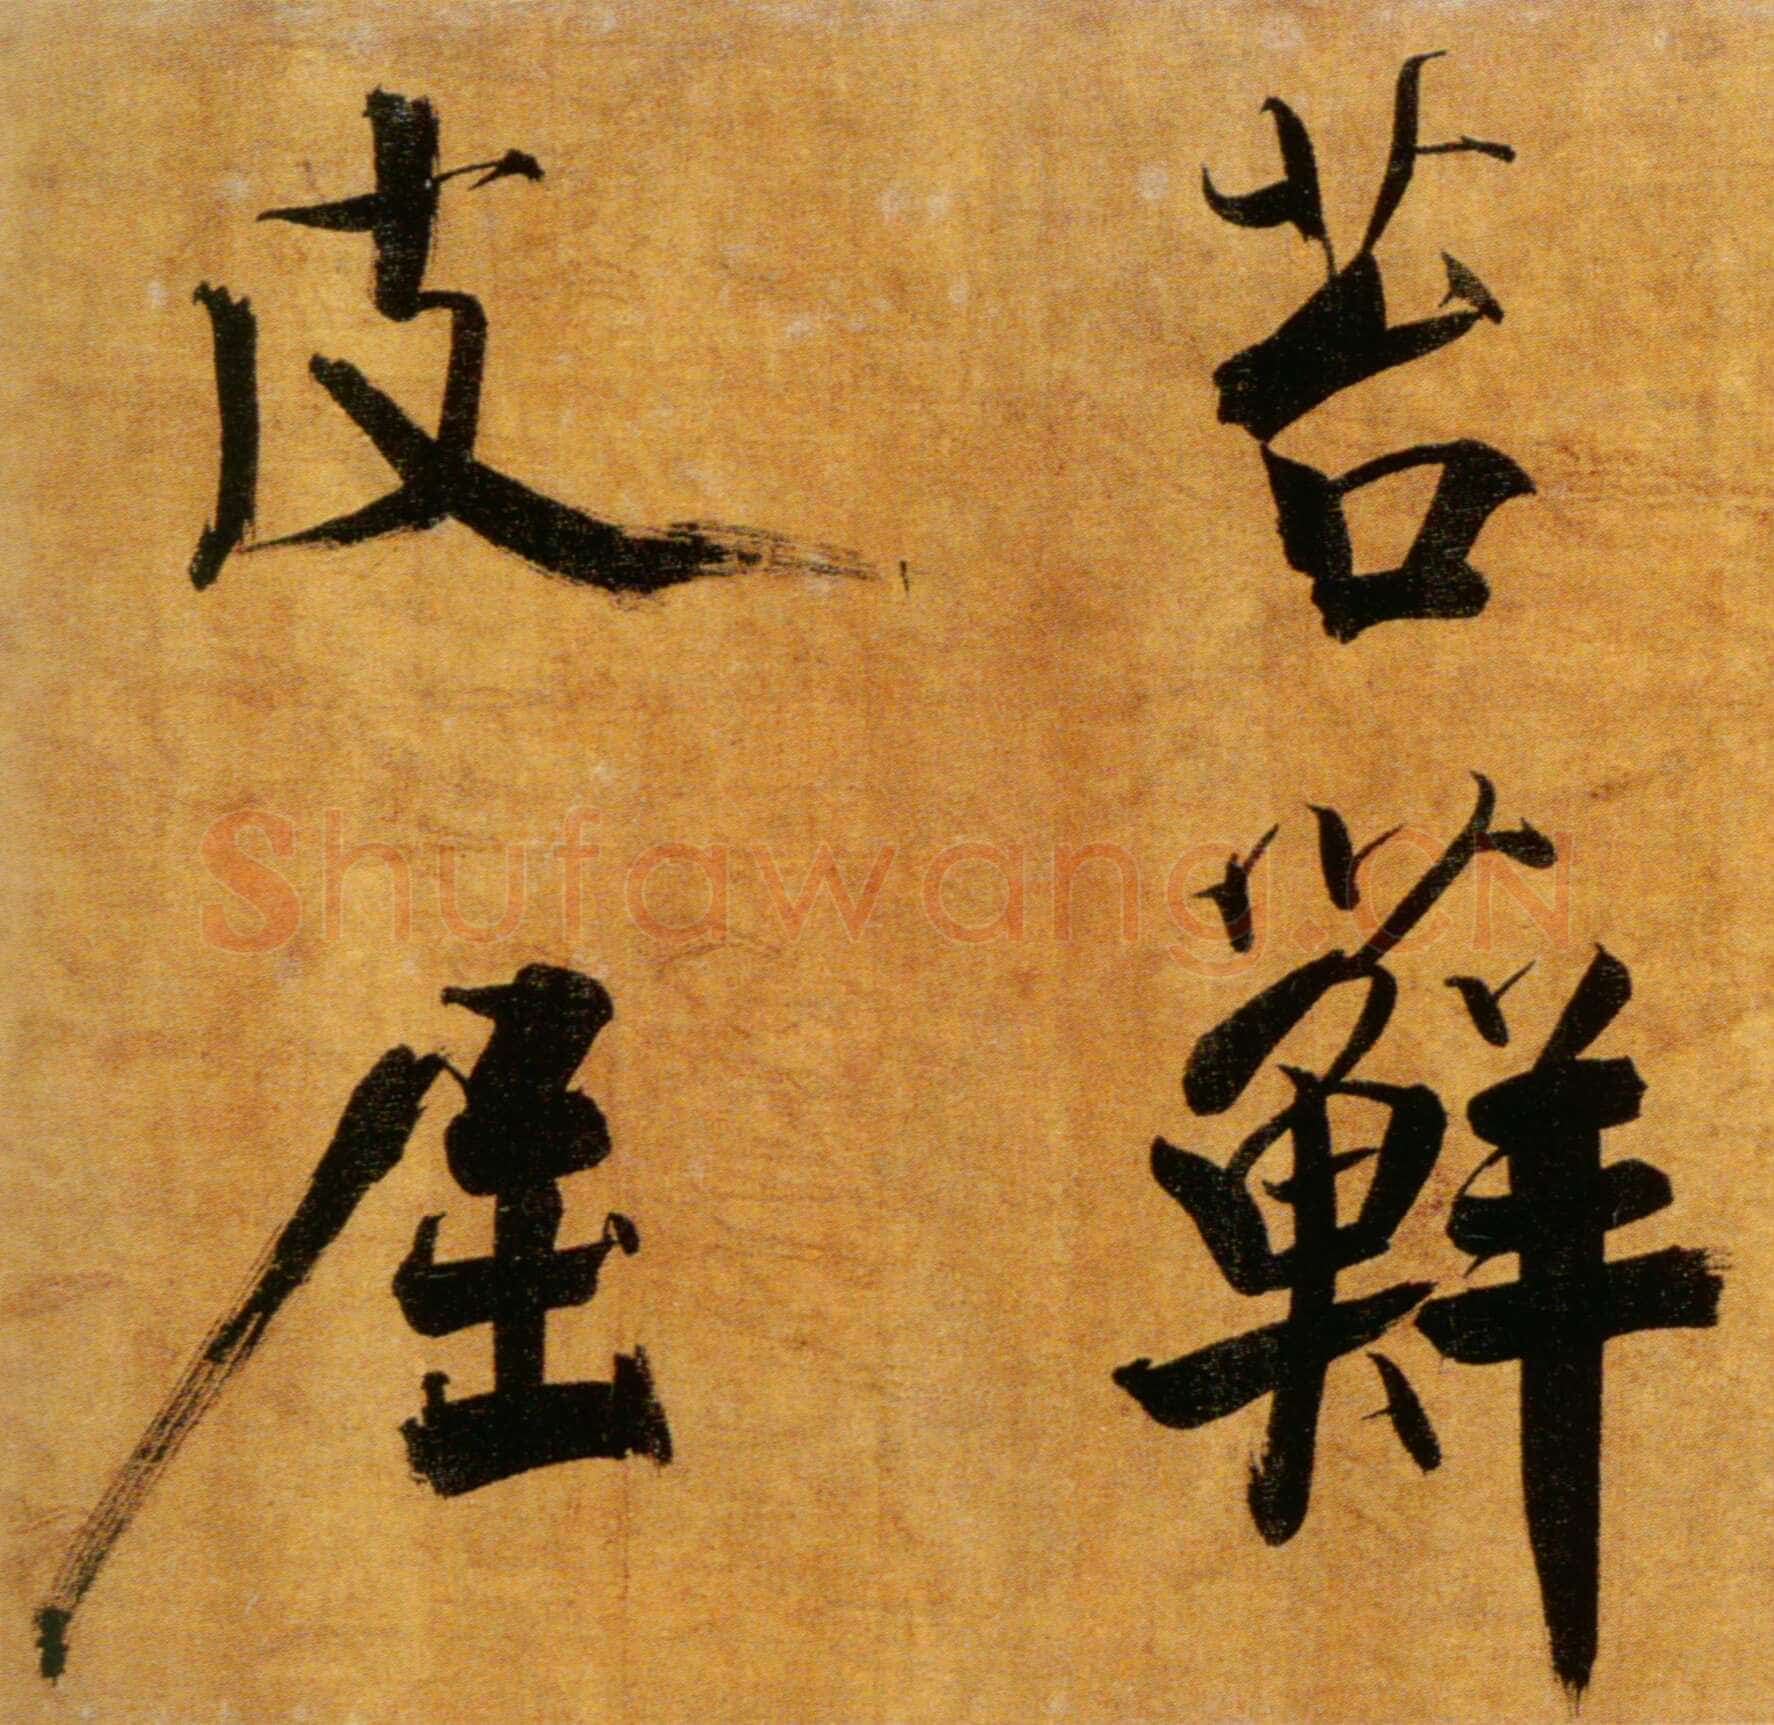 苔蘚
皮厓
Shufawang.CN